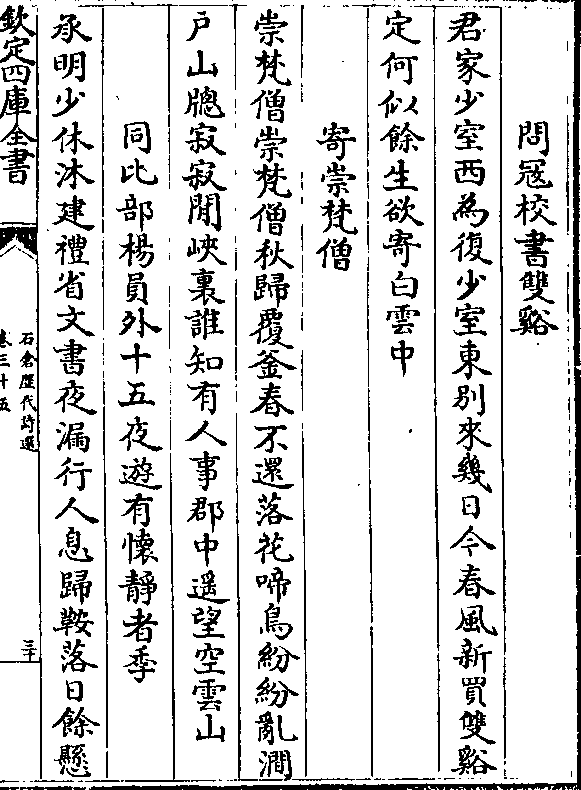 問冦校書雙谿
君家少室西為復少室東別來幾日今春風新買雙谿
定何似餘生欲寄白雲中
寄崇梵僧
崇梵僧崇梵僧秋歸覆釜春不還落花啼鳥紛紛亂澗
戸山牕寂寂閒峽裏誰知有人事郡中遥望空雲山
同比部楊員外十五夜遊有懷靜者季
承明少休沐建禮省文書夜漏行人息歸鞍落日餘懸
欽定四庫全書
石倉歴代詩選
卷三十五
三十